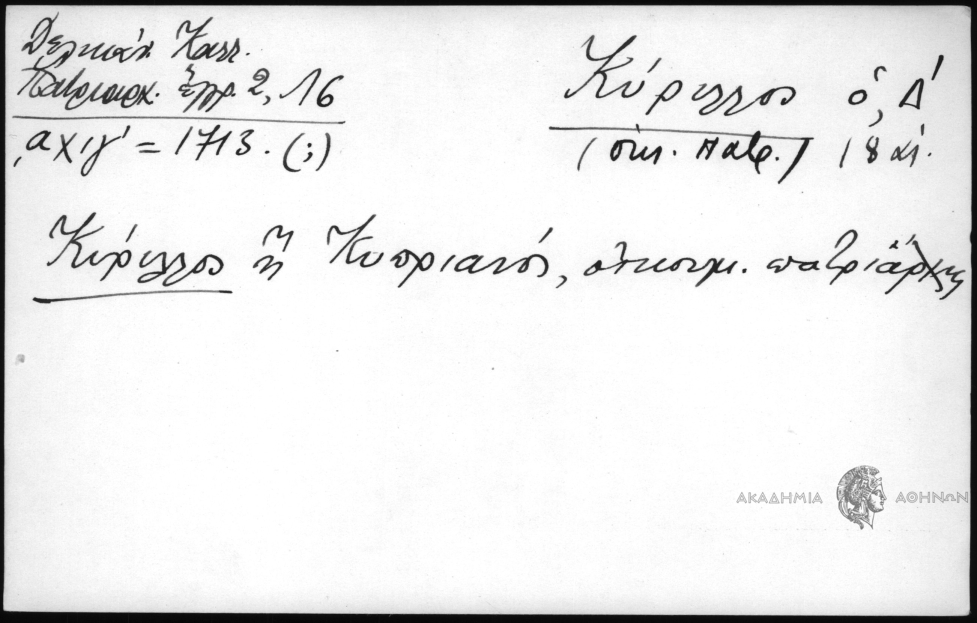 Δελικάν Καλλ.
Πατριαρχ. ἔγγρ. 2, 16
͵αχιγ' = 1713. (;)
Κύριλλος ὁ, Δ'
(οἰκ. πατρ.) 18 αἰ.
Κύριλλος ἢ Κυπριανός, οἰκουμ. πατριάρχης
ΑΚΑΔΗΜΙΑ ΑΘΗΝΩΝ